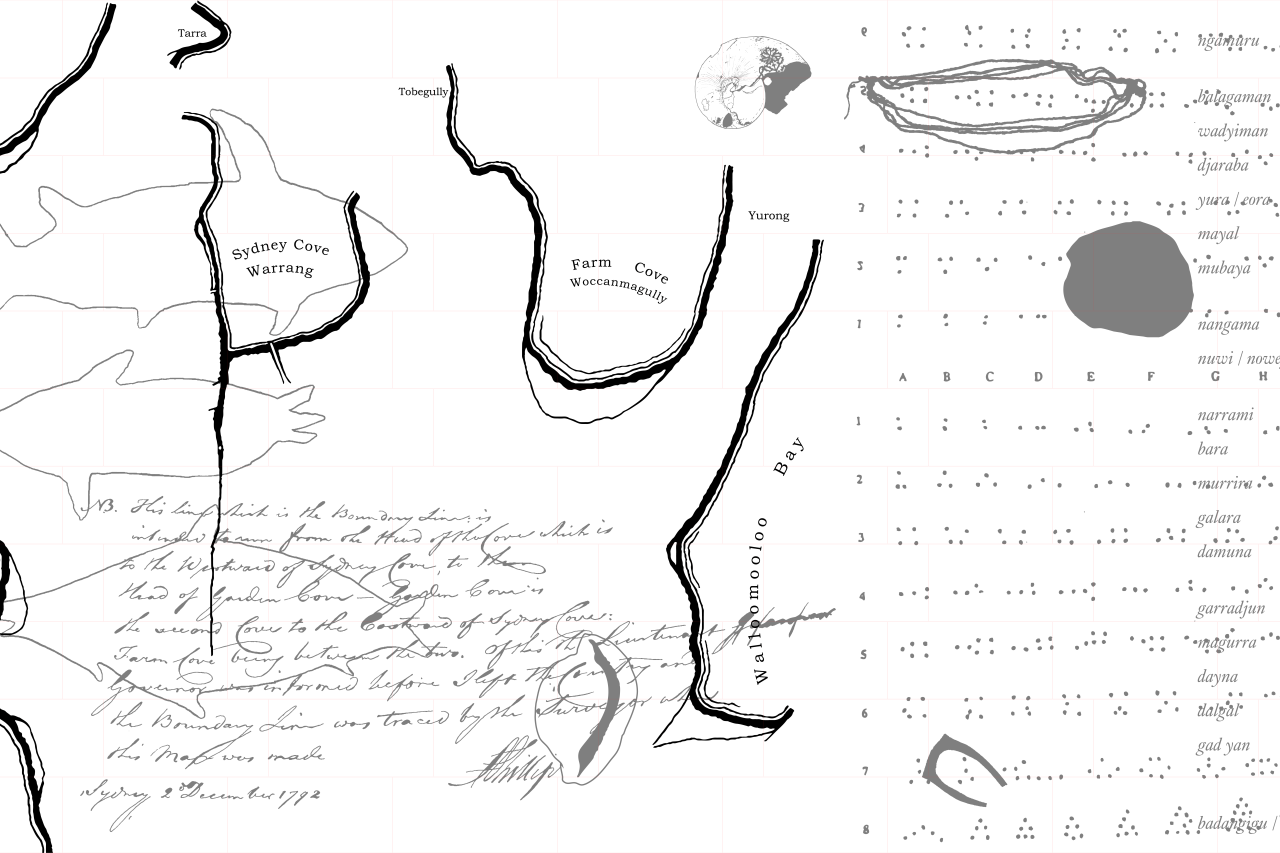 Tarra
Tobegully
Yurong
Sydney Cove
Warrang
Farm Cove
Woccanmagully
Bay
Walloomooloo
NB. This line which is the Boundary Line: is
intended to run from the Head of the Cove which is
to the Westward of Sydney Cove, to the
Head of Garden Cove — Garden Cove is
the second Cove to the Eastward of Sydney Cove:
Farm Cove being between the two. Of this the Lieutenant
Governor was informed before I left the Country and
the Boundary Line was traced by the Surveyor
this Map was made
APhillip
Sydney 2d December 1792
6
5
4
3
2
1
A B C D E F G H
1
2
3
4
5
6
7
8
ngamuru
balagaman
wadyiman
djaraba
yura / eora
mayal
mubaya
nangama
nuwi /
narrami
bara
murrira
galara
damuna
garradjun
magurra
dayna
dalgal
gad yan
badangigu /